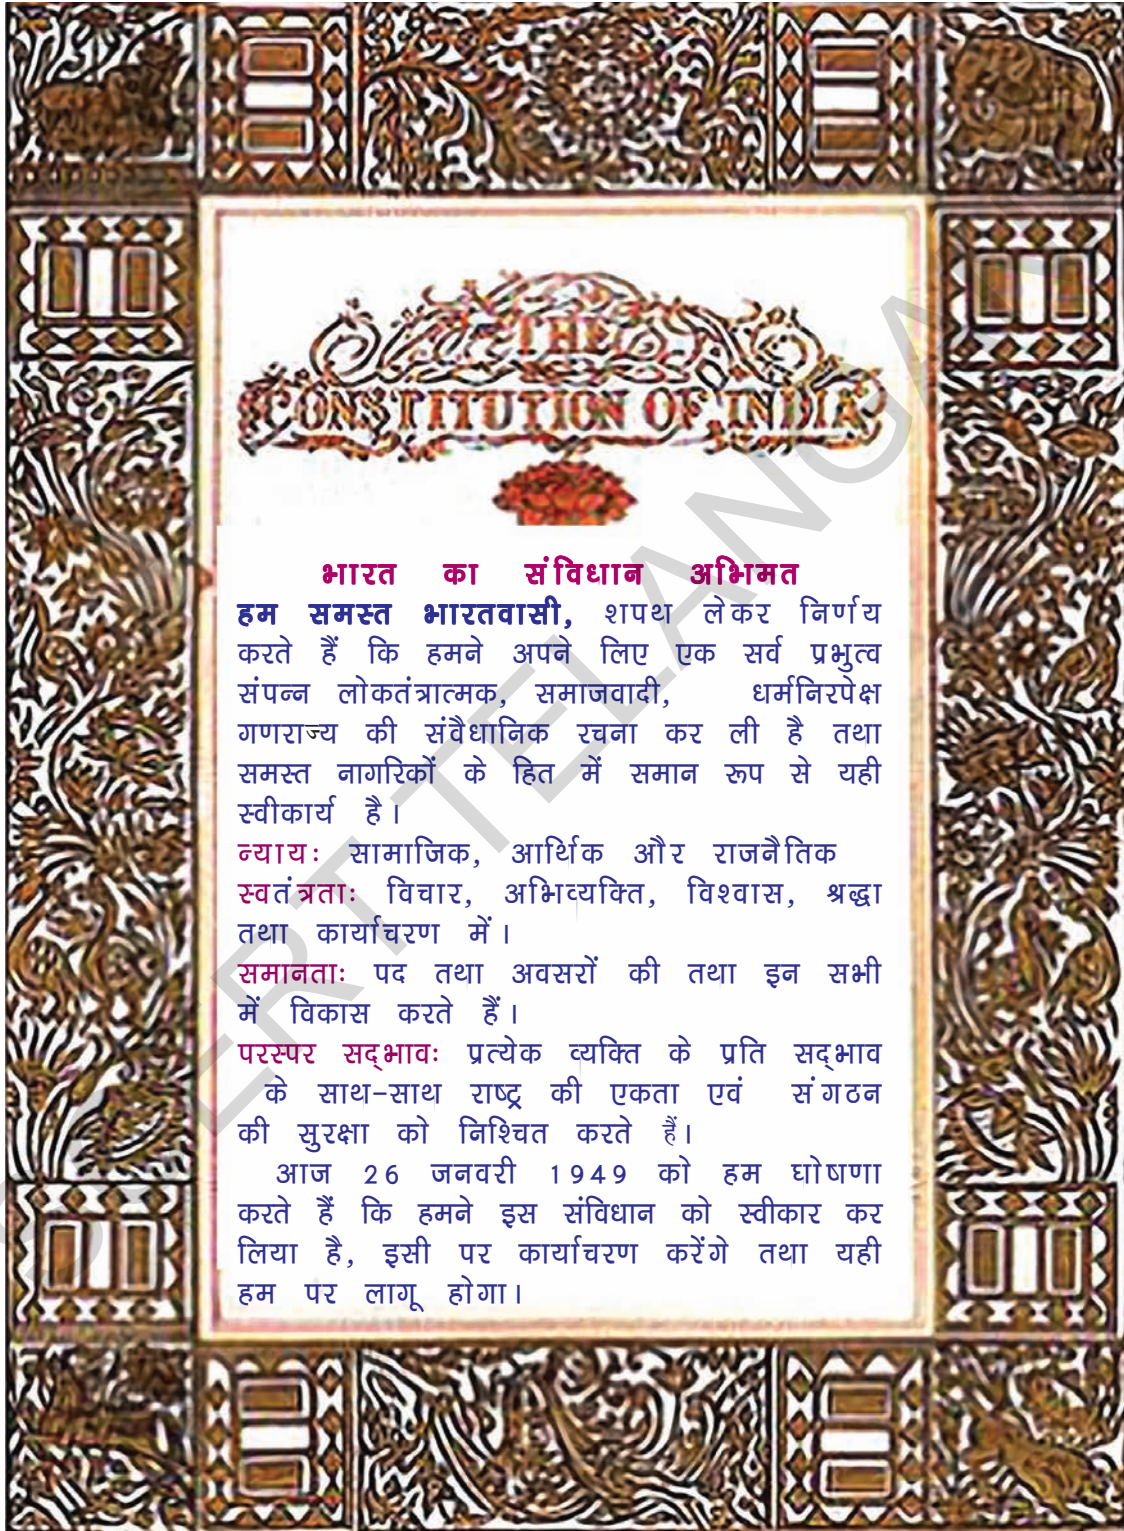 THE
CONSTITUTION OF INDIA
भारत का संविधान अभिमत
हम समस्त भारतवासी, शपथ लेकर निर्णय
करते हैं कि हमने अपने लिए एक सर्व प्रभुत्व
संपन्न लोकतंत्रात्मक, समाजवादी, धर्मनिरपेक्ष
गणराज्य की संवैधानिक रचना कर ली है तथा
समस्त नागरिकों के हित में समान रूप से यही
स्वीकार्य है।
न्यायः सामाजिक, आर्थिक और राजनैतिक
स्वतंत्रताः विचार, अभिव्यक्ति, विश्वास, श्रद्धा
तथा कार्याचरण में।
समानताः पद तथा अवसरों की तथा इन सभी
में विकास करते हैं।
परस्पर सद्भावः प्रत्येक व्यक्ति के प्रति सद्भाव
के साथ-साथ राष्ट्र की एकता एवं संगठन
की सुरक्षा को निश्चित करते हैं।
आज 26 जनवरी 1949 को हम घोषणा
करते हैं कि हमने इस संविधान को स्वीकार कर
लिया है, इसी पर कार्याचरण करेंगे तथा यही
हम पर लागू होगा।